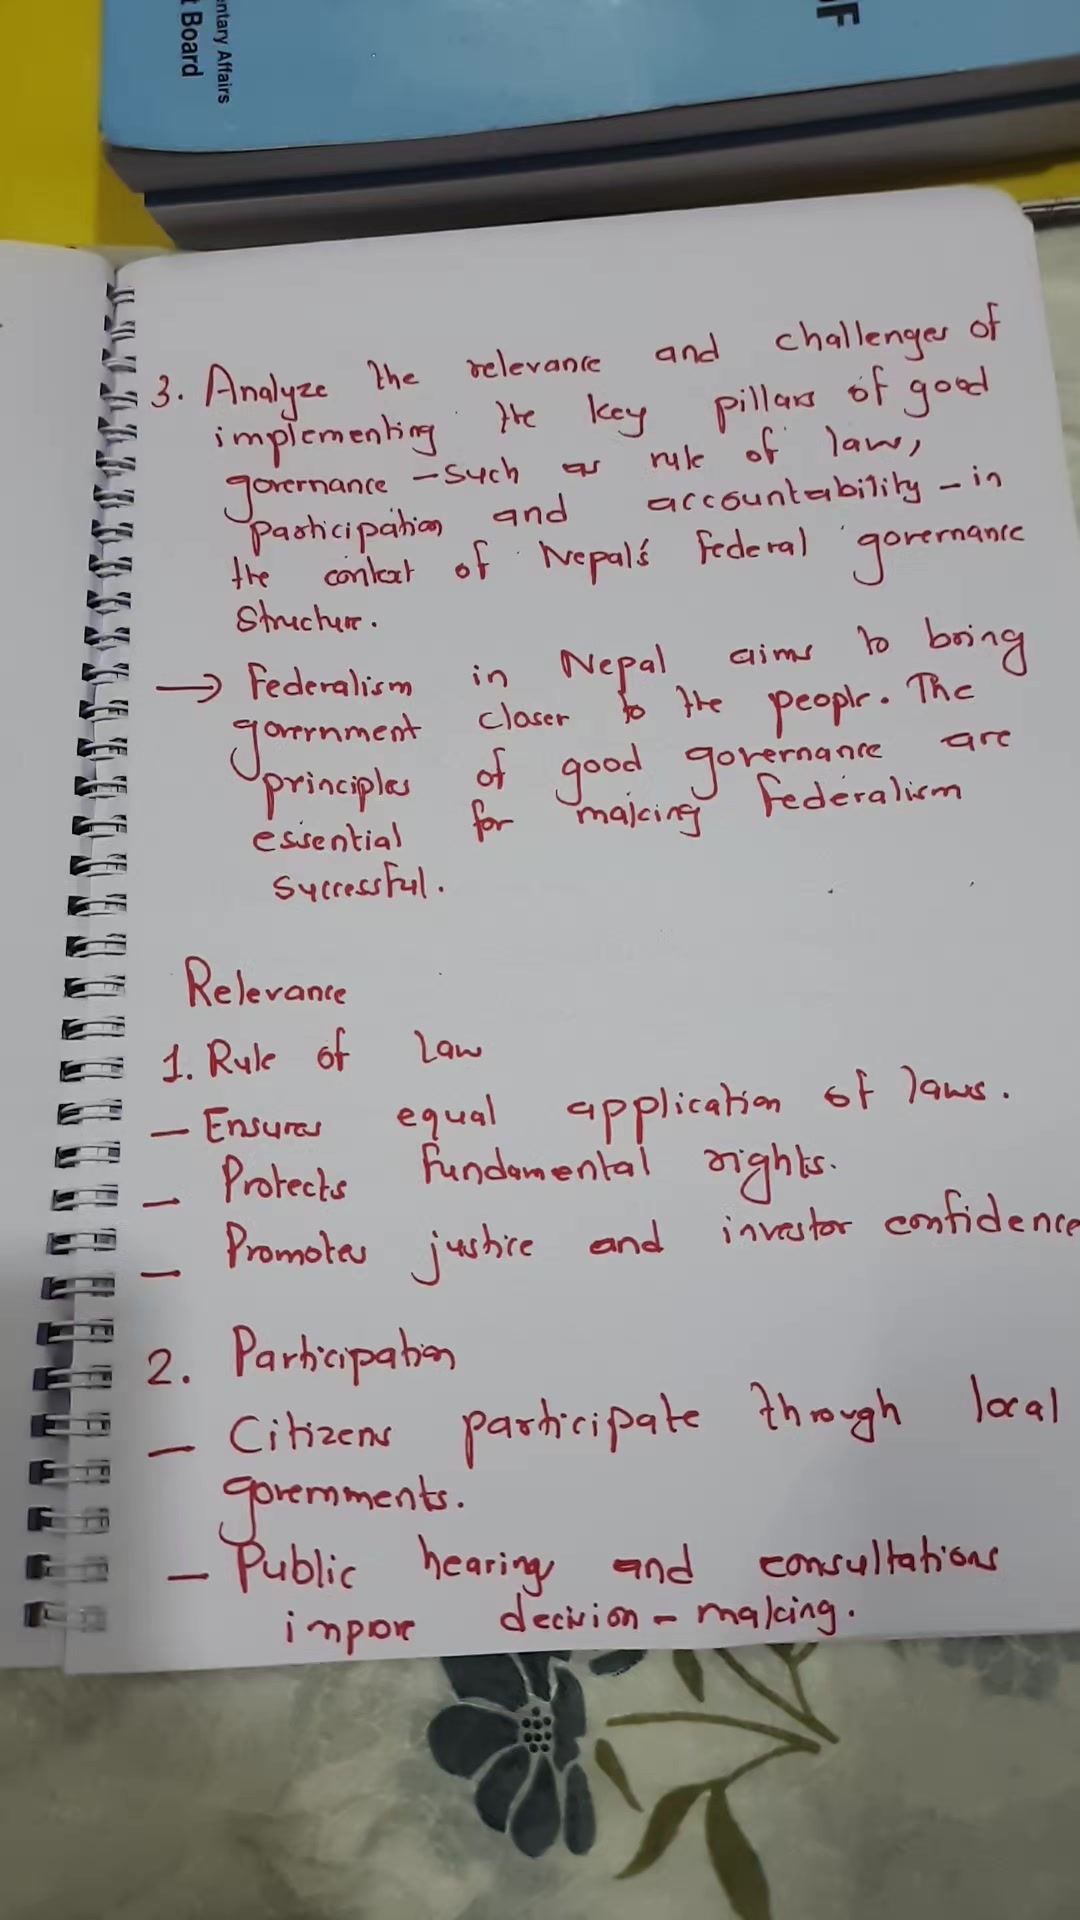 ntary Affairs
t Board
F
3. Analyze the relevance and challenges of
implementing the key pillars of good
governance - such as rule of law,
participation and accountability - in
the context of Nepal's federal governance
structure.
→ Federalism in Nepal aims to bring
government closer to the people. The
principles of good governance are
essential for making federalism
successful.
Relevance
1. Rule of Law
- Ensures equal application of laws.
- Protects fundamental rights.
- Promotes justice and investor confidence
2. Participation
- Citizens participate through local
governments.
- Public hearings and consultations
improve decision-making.